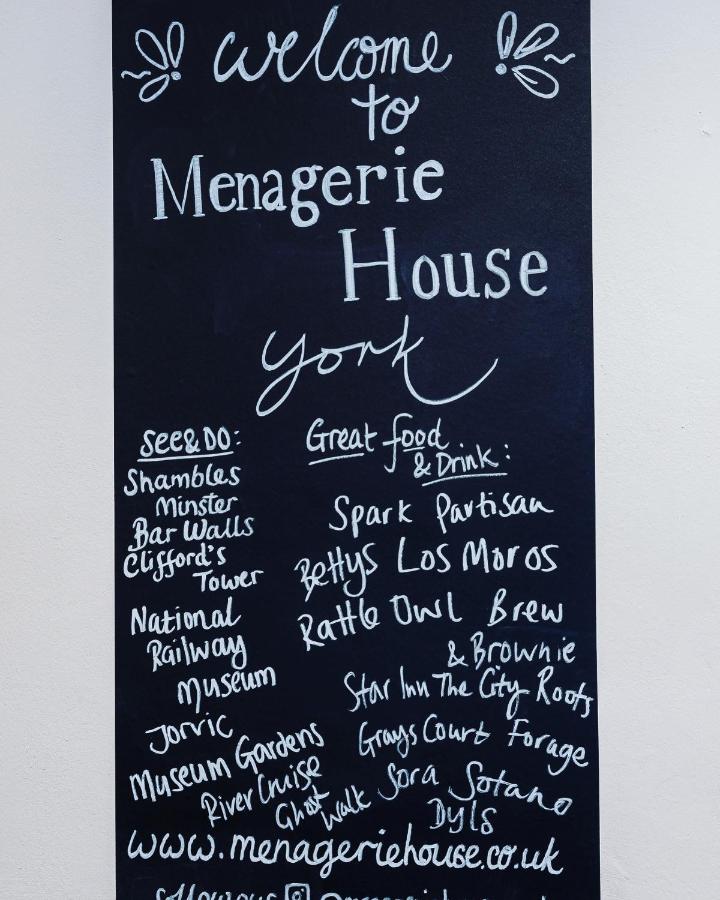 welcome
to
Menagerie
House
york
See & DO:
Shambles
Minster
Bar Walls
Clifford's
Tower
National
Railway
Museum
Jorvic
Museum Gardens
River Cruise
Ghost Walk
Great food
& Drink:
Spark Partisan
Bettys Los Moros
Rattle Owl Brew
& Brownie
Star Inn The City Roots
Grays Court Forage
Sora Sotano
Dyls
www.menageriehouse.co.uk